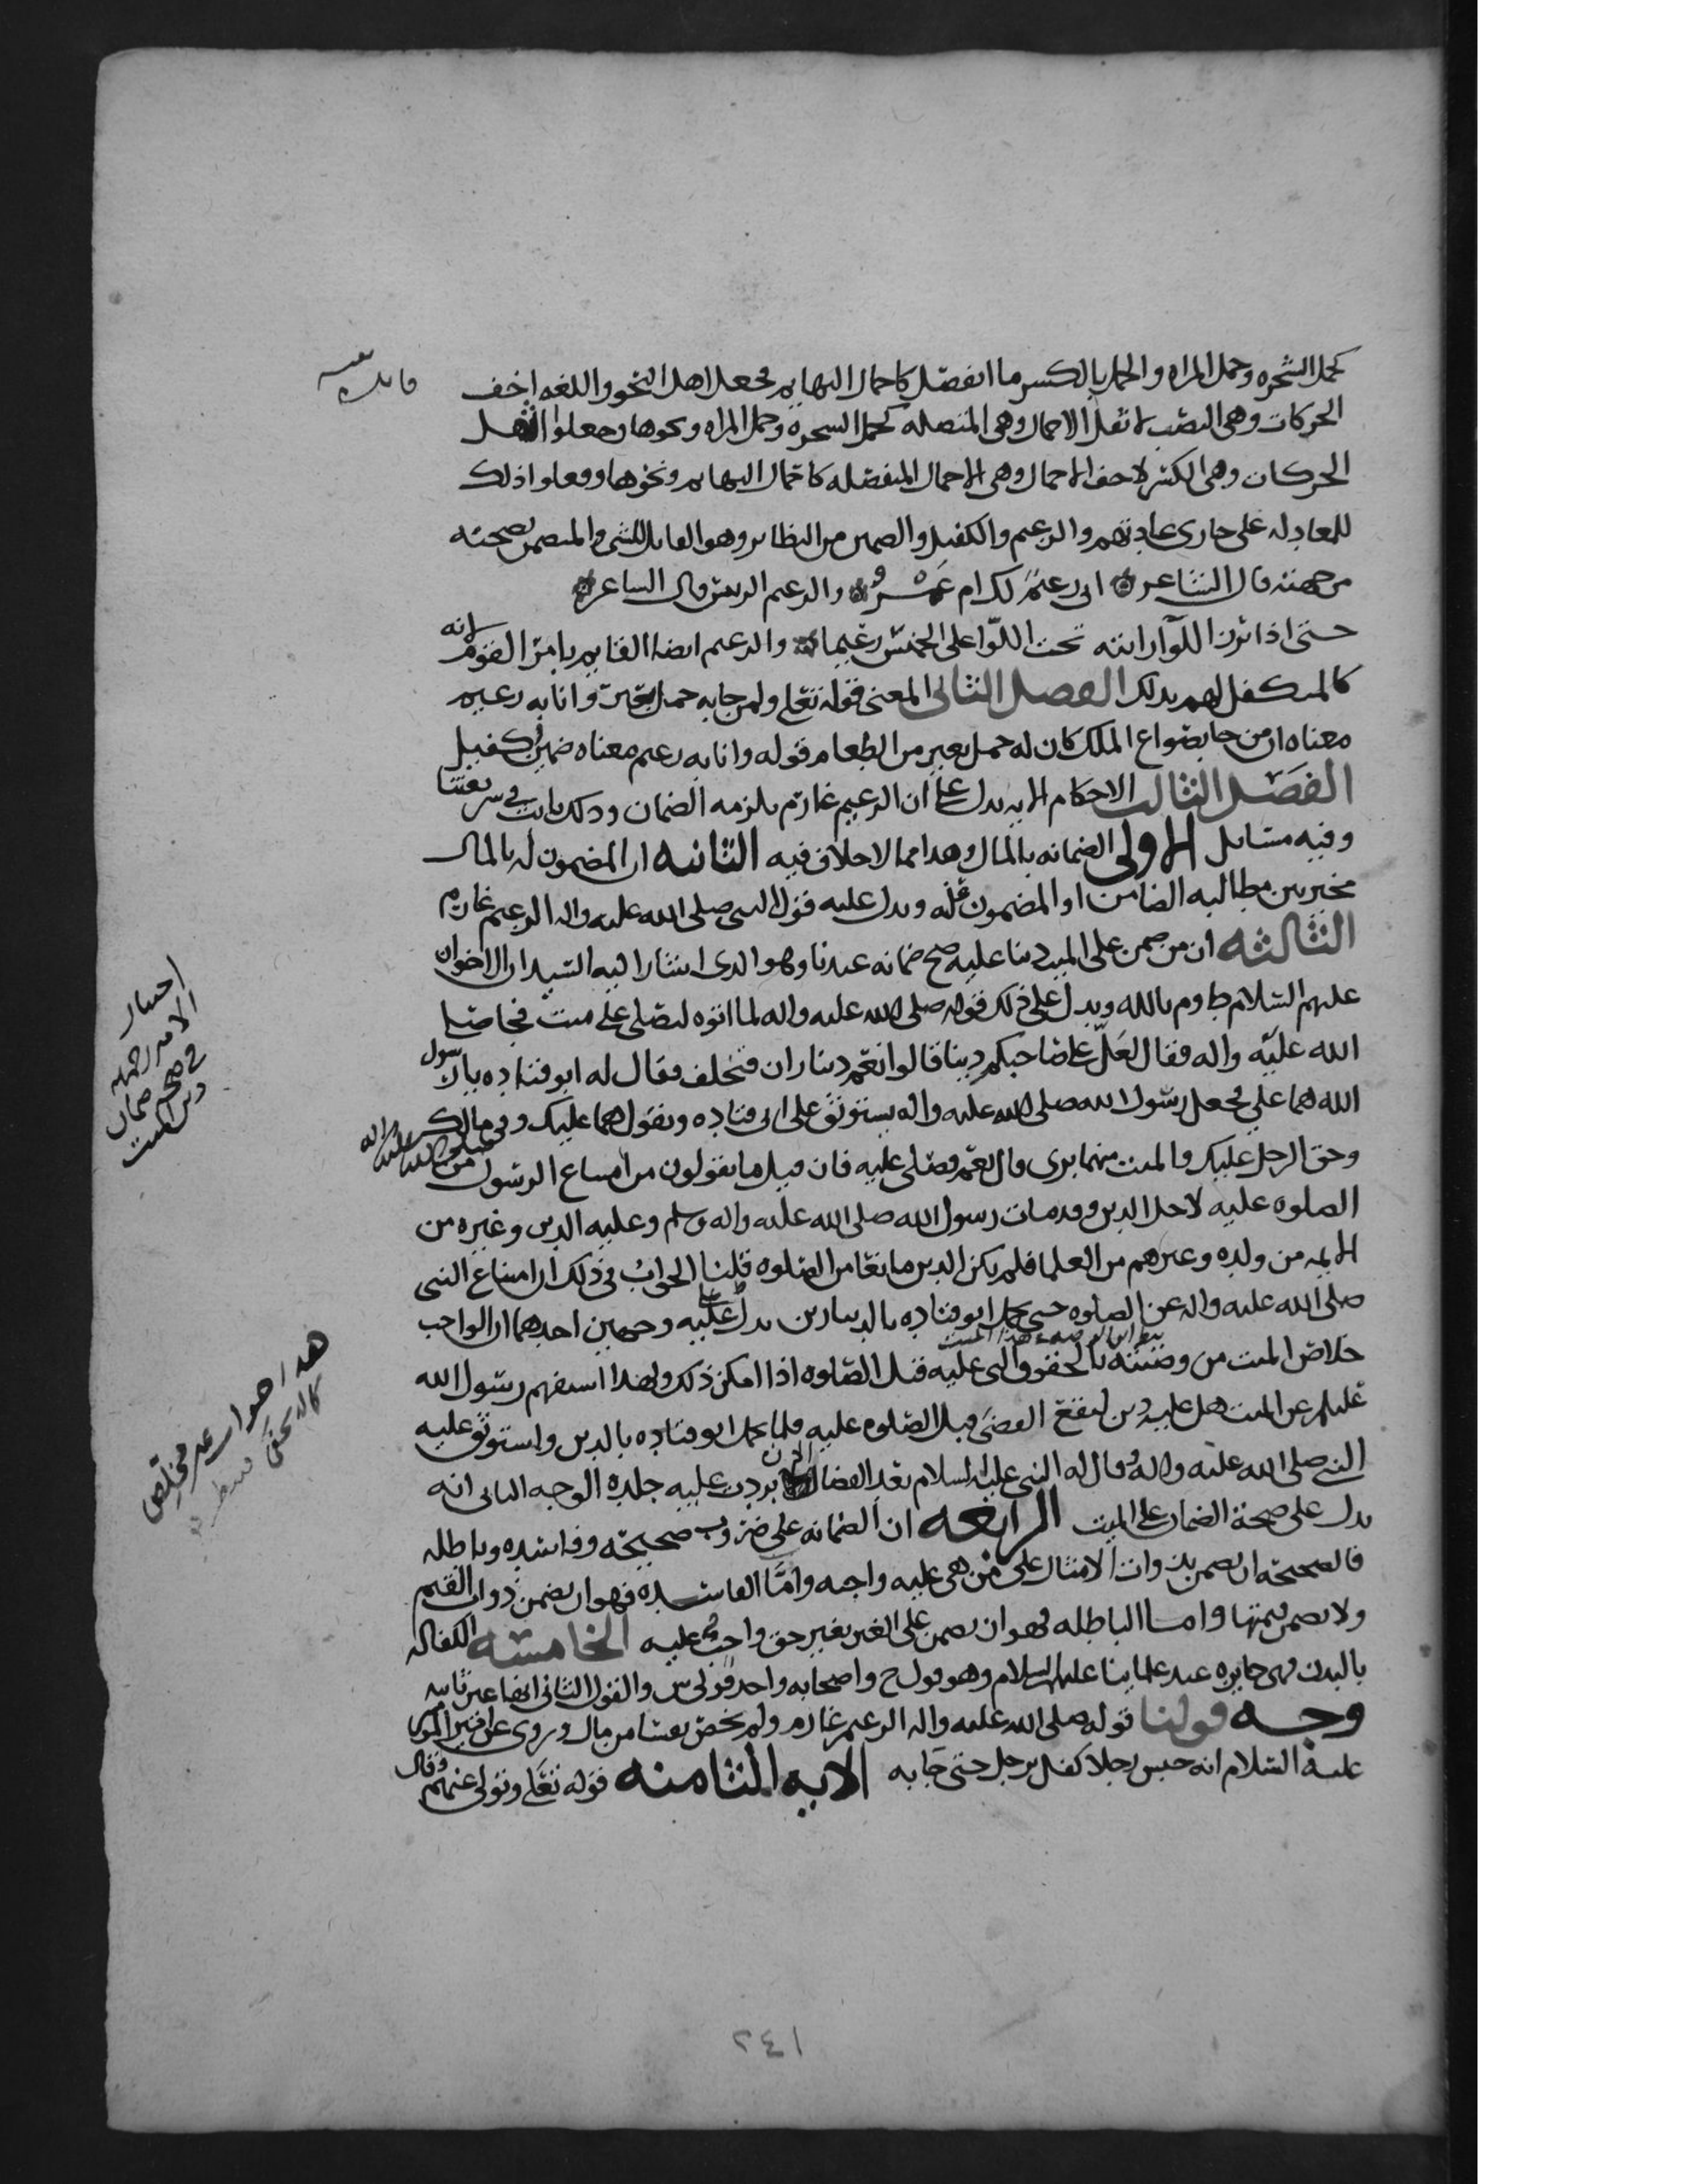 كحمل الشجره وحمل المراه والحمل بالكسر ما انفصل كاحمال البهايم فجعل اهل النحو واللغه اخف
الحركات وهى النصب لاثقل الاحمال وهى المتصله كحمل الشجره وحمل المراه ونحوها وجعلوا اثقل
الحركات وهى الكسر لاخف الاحمال وهى الاحمال المنفصله كاحمال البهايم ونحوها وفعلوا ذلك
للمعادله على جارى عادتهم والزعيم والكفيل والضمين من النظاير وهو القابل للشى والمتضمن بصحته
من جهته قال الشاعر انى زعيم لك ام عمرو والزعيم الريس قال الشاعر
حتى اذا نزل اللوا رايته تحت اللوا على الخميس زعيما والزعيم ايضا القايم بامر القوم لانه
كالمتكفل لهم بذلك الفصل الثانى المعنى قوله تعلى ولمن جا به حمل بعير وانا به زعيم
معناه ان من جا بصواع الملك كان له حمل بعير من الطعام قوله وانا به زعيم معناه ضمين كفيل
الفصل الثالث الاحكام الايه تدل على ان الزعيم غارم يلزمه الضمان وذلك ثابت فى شريعتنا
وفيه مسايل الاولى الضمانه بالمال وهذا مما لا خلاف فيه الثانيه ان المضمون له بالمال
مخير بين مطالبه الضامن او المضمون عنه ويدل عليه قول النبى صلى الله عليه واله الزعيم غارم
الثالثه ان من ضمن على الميت دينا عليه صح ضمانه عندنا وهو الذى اشار اليه السيدان الاخوان
عليهم السلام وبه وم بالله ويدل على ذلك قوله صلى الله عليه واله لما اتوه ليصلى على ميت فجا صلى
الله عليه واله فقال لعل على صاحبكم دينا قالوا نعم ديناران فتخلف فقال له ابو قتاده يا رسول
الله هما على فجعل رسول الله صلى الله عليه واله يستوثق على ابى قتاده ويقول هما عليك وفى مالك
وحق الرجل عليك والميت منهما برى قال نعم فصلى عليه فان قيل ما تقولون من امتناع الرسول صلى الله عليه واله من
الصلوه عليه لاجل الدين وقد مات رسول الله صلى الله عليه واله وسلم وعليه الدين وغيره من
الايمه من ولده وغيرهم من العلما فلم يكن الدين مانعا من الصلوه قلنا الجواب فى ذلك ان امتناع النبى
صلى الله عليه واله عن الصلوه حتى تحمل ابو قتاده بالدينارين يدل على وجهين احدهما ان الواجب
خلاص الميت من وصيته بالحقوق التى عليه قبل الصلوه اذا امكن ذلك ولهذا استفهم رسول الله
عليلم عن الميت هل عليه دين ليقع القضى قبل الصلوه عليه فلما تحمل ابو قتاده بالدين واستوثق عليه
النبى صلى الله عليه واله وقال له النبى عليه السلام بعد القضا الان بردت عليه جلده الوجه الثانى انه
يدل على صحة الضمان على الميت الرابعه ان الضمانه على ضروب صحيحه وفاسده وباطله
فالصحيحه ان يضمن بذوات الامثال على من هى عليه واجبه واما الفاسده فهو ان يضمن ذوات القيم
ولا يضمن قيمتها واما الباطله فهو ان يضمن على الغير بغير حق واجب عليه الخامسه الكفاله
بالبدن فهى جايزه عند علماينا عليهم السلام وهو قول ح واصحابه واحد قولى ش والقول الثانى انها غير ثابته
وجه قولنا قوله صلى الله عليه واله الزعيم غارم ولم يخص نفسا من مال وروى عن امير المومنين
عليه السلام انه حبس رجلا كفل برجل حتى جا به الايه الثامنه قوله تعلى وتولى عنهم وقال
اختيار
الامير رحمه الله
فى صحة ضمان
دين الميت
هذا جواب غير مخلص
٢٤١